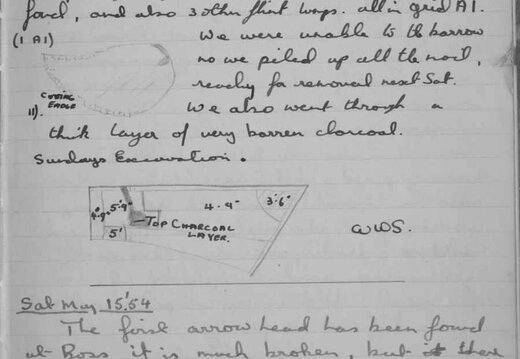 found, and also 3 other flint imps. all in grid A1.
(1 A1)
We were unable to the barrow
so we piled up all the soil,
ready for removal next Sat.
CUTTING EDGE
11).
We also went through a
thick layer of very barren charcoal.
Sundays Excavation.
4'9" 5'9" 4'4" 3'6"
TOP CHARCOAL
LAYER.
5'
Sat May 15'54
The first arrow head has been found
at Ross it is much broken, but it